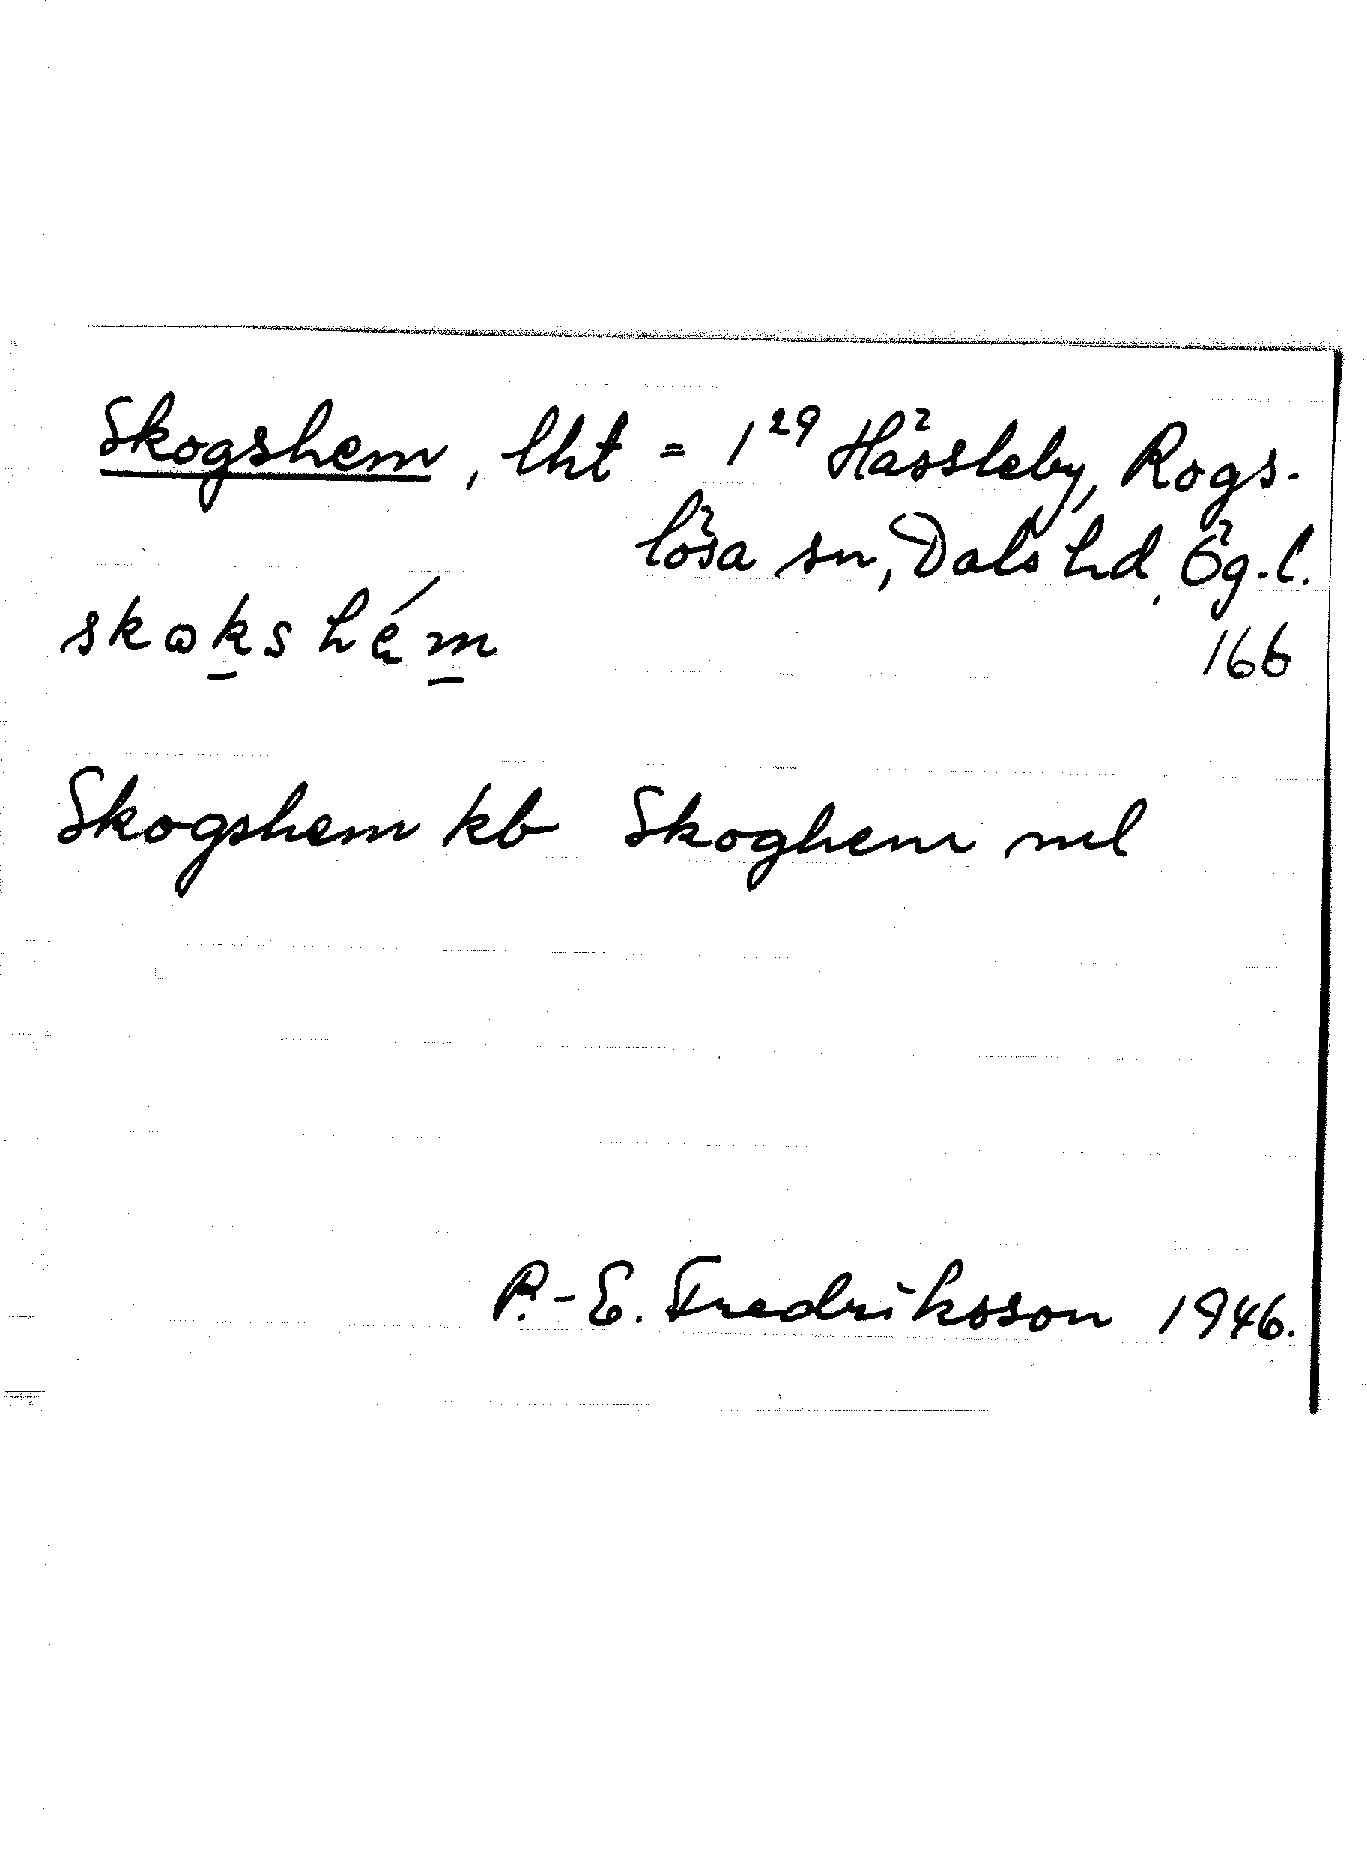 Skogshem, lht = 1²⁹ Hässleby, Rogs-
lösa sn, Dals hd, Ög. l.
skɷk̲s hę́m̲
166
Skogshem kb Skoghem ml
P.-E. Fredriksson 1946.